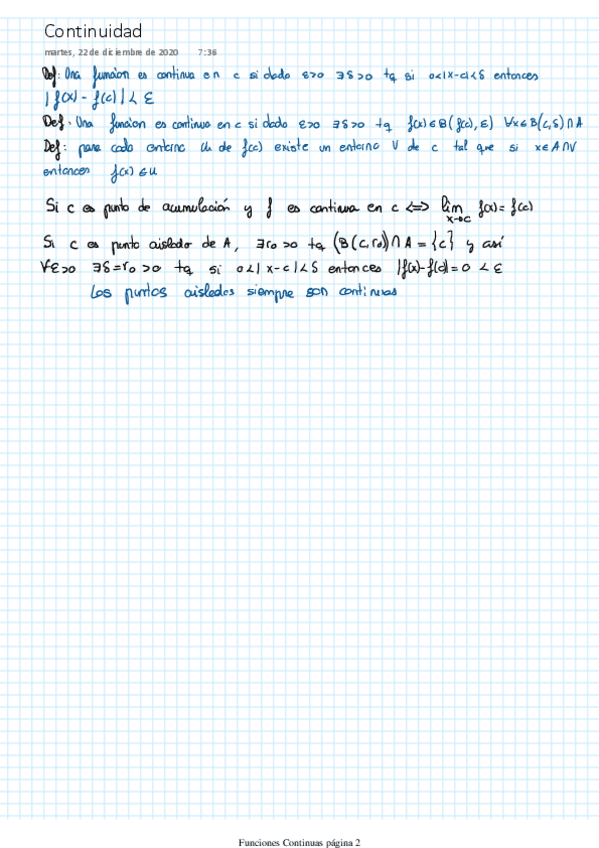 Continuidad
martes, 22 de diciembre de 2020 7:36
Def: Una funcion es continua en c si dado ε>0 ∃δ>0 tq si 0<|x-c|<δ entonces
|f(x) - f(c)| < ε
Def: Una funcion es continua en c si dado ε>0 ∃δ>0 tq f(x)∈B(f(c),ε) ∀x∈B(c,δ)∩A
Def: para cada entorno U de f(c) existe un entorno V de c tal que si x∈A∩V
entonces f(x)∈U
Si c es punto de acumulación y f es continua en c <=> lim f(x) = f(c)
x→c
Si c es punto aislado de A, ∃r₀>0 tq (B(c,r₀))∩A = {c} y así
∀ε>0 ∃δ=r₀>0 tq si 0<|x-c|<δ entonces |f(x)-f(c)|=0 < ε
Los puntos aislados siempre son continuas
Funciones Continuas página 2